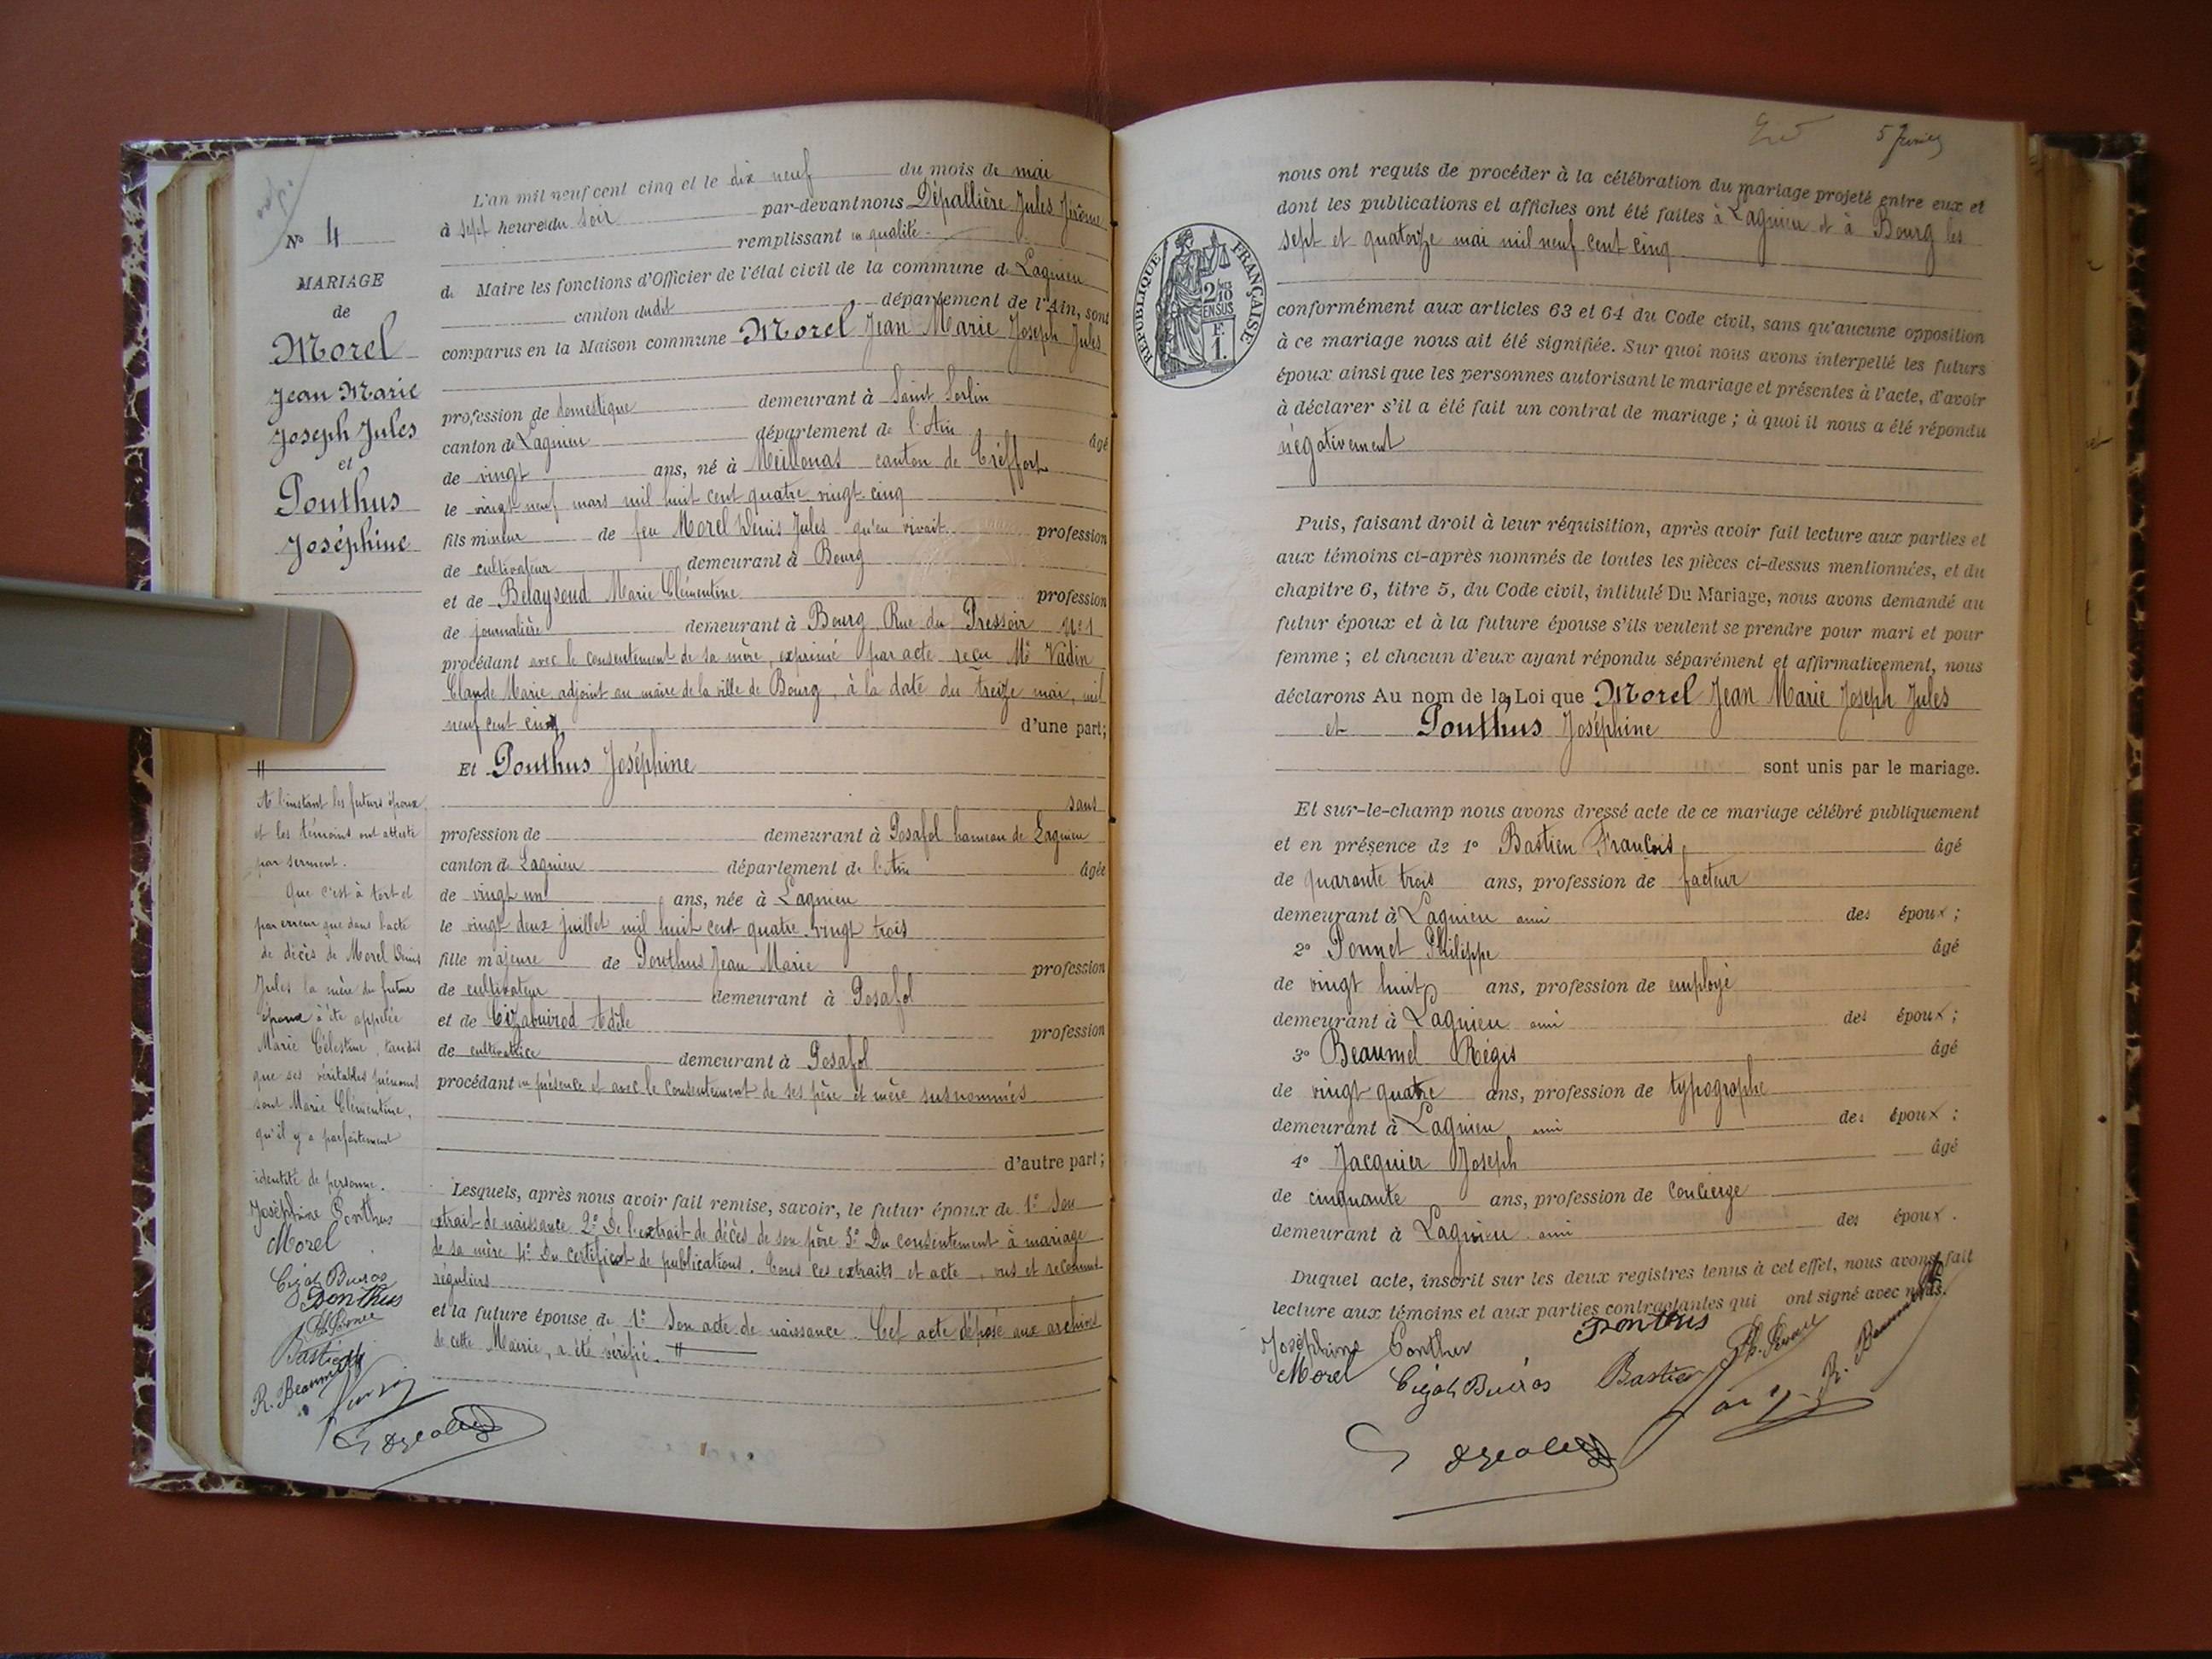 N° 4
MARIAGE
de
Morel
Jean Marie
Joseph Jules
et
Ponthus
Joséphine
A l'instant les futurs époux
et les témoins ont attesté
par serment.
Que c'est à tort et
par erreur que dans l'acte
de décès de Morel Denis
Jules la mère du futur
époux a été appelée
Marie Célestine, tandis
que ses véritables prénoms
sont Marie Clémentine,
qu'il y a parfaitement
identité de personne.
Joséphine Ponthus
Morel
Ponthus
Bastien
R. Beaumel
L'an mil neuf cent cinq et le dix neuf du mois de mai
à sept heure du soir par-devant nous Dépallière Jules Jérôme
remplissant en qualité
de Maire les fonctions d'Officier de l'état civil de la commune de Lagnieu
canton dudit département de l'Ain, sont
comparus en la Maison commune Morel Jean Marie Joseph Jules
profession de domestique demeurant à Saint Sorlin
canton de Lagnieu département de l'Ain âgé
de vingt ans, né à Meillonas canton de Tréffort
le vingt neuf mars mil huit cent quatre vingt cinq
fils mineur de feu Morel Denis Jules qu'en vivait profession
de cultivateur demeurant à Bourg
et de Belaysoud Marie Clémentine profession
de journalière demeurant à Bourg Rue du Pressoir N° 1
procédant avec le consentement de sa mère, exprimé par acte reçu Mr Vadin
Claude Marie adjoint au maire de la ville de Bourg, à la date du treize mai, mil
neuf cent cinq d'une part;
Et Ponthus Joséphine
sans
profession de demeurant à Posafol hameau de Lagnieu
canton de Lagnieu département de l'Ain âgée
de vingt un ans, née à Lagnieu
le vingt deux juillet mil huit cent quatre vingt trois
fille majeure de Ponthus Jean Marie profession
de cultivateur demeurant à Posafol
et de Adèle profession
de cultivatrice demeurant à Posafol
procédant en présence et avec le consentement de ses père et mère susnommés
d'autre part;
Lesquels, après nous avoir fait remise, savoir, le futur époux de 1° Son
extrait de naissance 2° De l'extrait de décès de son père 3° Du consentement à mariage
de sa mère 4° Du certificat de publications. Tous ces extraits et acte, vus et reconnus
réguliers
et la future épouse de 1° Son acte de naissance. Cet acte déposé aux archives
de cette Mairie, a été vérifié.
5 Février
nous ont requis de procéder à la célébration du mariage projeté entre eux et
dont les publications et affiches ont été faites à Lagnieu et à Bourg les
sept et quatorze mai mil neuf cent cinq
RÉPUBLIQUE FRANÇAISE
2/10 EN SUS
F. 1.
conformément aux articles 63 et 64 du Code civil, sans qu'aucune opposition
à ce mariage nous ait été signifiée. Sur quoi nous avons interpellé les futurs
époux ainsi que les personnes autorisant le mariage et présentes à l'acte, d'avoir
à déclarer s'il a été fait un contrat de mariage ; à quoi il nous a été répondu
négativement
Puis, faisant droit à leur réquisition, après avoir fait lecture aux parties et
aux témoins ci-après nommés de toutes les pièces ci-dessus mentionnées, et du
chapitre 6, titre 5, du Code civil, intitulé Du Mariage, nous avons demandé au
futur époux et à la future épouse s'ils veulent se prendre pour mari et pour
femme ; et chacun d'eux ayant répondu séparément et affirmativement, nous
déclarons Au nom de la Loi que Morel Jean Marie Joseph Jules
et Ponthus Joséphine
sont unis par le mariage.
Et sur-le-champ nous avons dressé acte de ce mariage célébré publiquement
et en présence de 1° Bastien François âgé
de quarante trois ans, profession de facteur
demeurant à Lagnieu ami des époux ;
2° Ponnet Philippe âgé
de vingt huit ans, profession de employé
demeurant à Lagnieu ami des époux ;
3° Beaumel Régis âgé
de vingt quatre ans, profession de typographe
demeurant à Lagnieu ami des époux ;
4° Jacquier Joseph âgé
de cinquante ans, profession de concierge
demeurant à Lagnieu ami des époux.
Duquel acte, inscrit sur les deux registres tenus à cet effet, nous avons fait
lecture aux témoins et aux parties contractantes qui ont signé avec nous.
Joséphine Ponthus Ponthus
Morel Bastien R. Beaumel